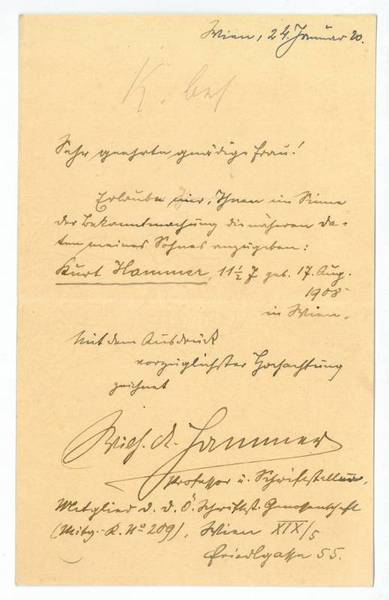 Wien, 24. Januar 20.
K. bes
Sehr geehrte gnädige Frau!
Erlaube mir, Ihnen im Sinne
der Bekanntmachung die näheren Da-
ten meines Sohnes anzugeben:
Kurt Hammer, 11 1/2 J geb. 17. Aug.
1908
in Wien.
Mit dem Ausdruck
vorzüglichster Hochachtung
zeichnet
Hammer
Professor u. Schriftsteller,
Mitglied d. D. Ö. Schriftst. Genossenschft
(Mitg.-K. No 209), Wien XIX/5
Friedlgasse 55.